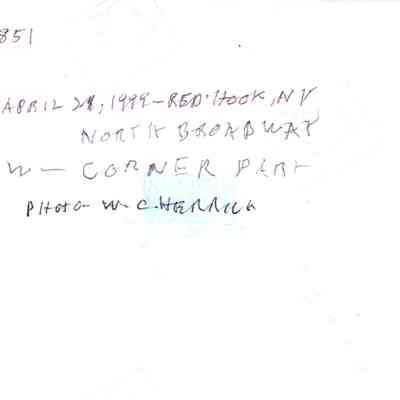 851
APRIL 28, 1999 - RED HOOK, NY
NORTH BROADWAY
W - CORNER PART
PHOTO - W. C. HERRICK